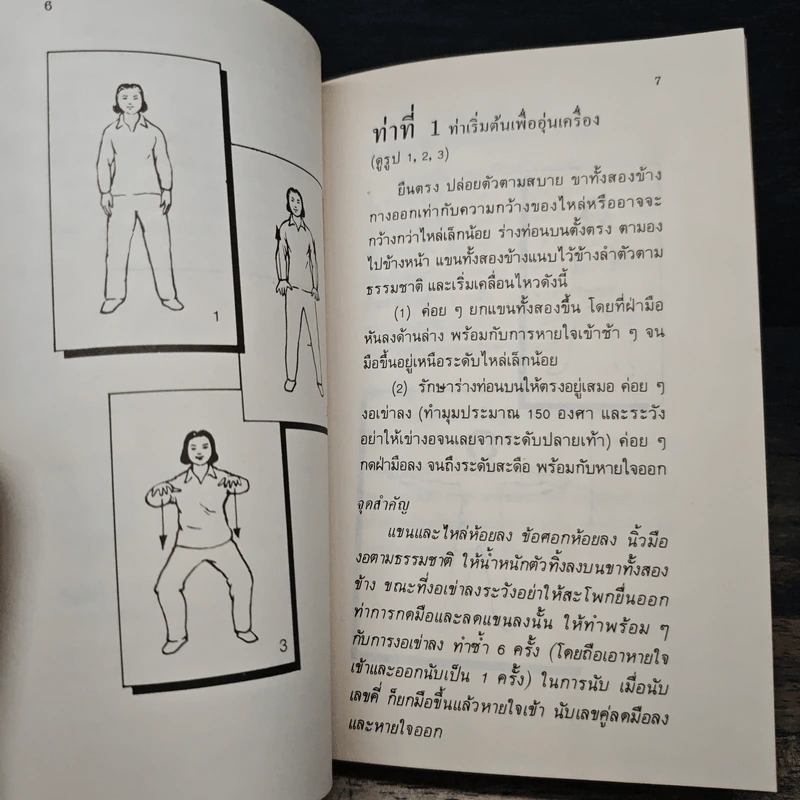 6
1
3
7
ท่าที่ 1 ท่าเริ่มต้นเพื่ออุ่นเครื่อง
(ดูรูป 1, 2, 3)
ยืนตรง ปล่อยตัวตามสบาย ขาทั้งสองข้าง
กางออกเท่ากับความกว้างของไหล่หรืออาจจะ
กว้างกว่าไหล่เล็กน้อย ร่างท่อนบนตั้งตรง ตามอง
ไปข้างหน้า แขนทั้งสองข้างแนบไว้ข้างลำตัวตาม
ธรรมชาติ และเริ่มเคลื่อนไหวดังนี้
(1) ค่อย ๆ ยกแขนทั้งสองขึ้น โดยที่ฝ่ามือ
หันลงด้านล่าง พร้อมกับการหายใจเข้าช้า ๆ จน
มือขึ้นอยู่เหนือระดับไหล่เล็กน้อย
(2) รักษาร่างท่อนบนให้ตรงอยู่เสมอ ค่อย ๆ
งอเข่าลง (ทำมุมประมาณ 150 องศา และระวัง
อย่าให้เข่างอจนเลยจากระดับปลายเท้า) ค่อย ๆ
กดฝ่ามือลง จนถึงระดับสะดือ พร้อมกับหายใจออก
จุดสำคัญ
แขนและไหล่ห้อยลง ข้อศอกห้อยลง นิ้วมือ
งอตามธรรมชาติ ให้น้ำหนักตัวทิ้งลงบนขาทั้งสอง
ข้าง ขณะที่งอเข่าลงระวังอย่าให้สะโพกยื่นออก
ท่าการกดมือและลดแขนลงนั้น ให้ทำพร้อม ๆ
กับการงอเข่าลง ทำซ้ำ 6 ครั้ง (โดยถือเอาหายใจ
เข้าและออกนับเป็น 1 ครั้ง) ในการนับ เมื่อนับ
เลขคี่ ก็ยกมือขึ้นแล้วหายใจเข้า นับเลขคู่ลดมือลง
และหายใจออก